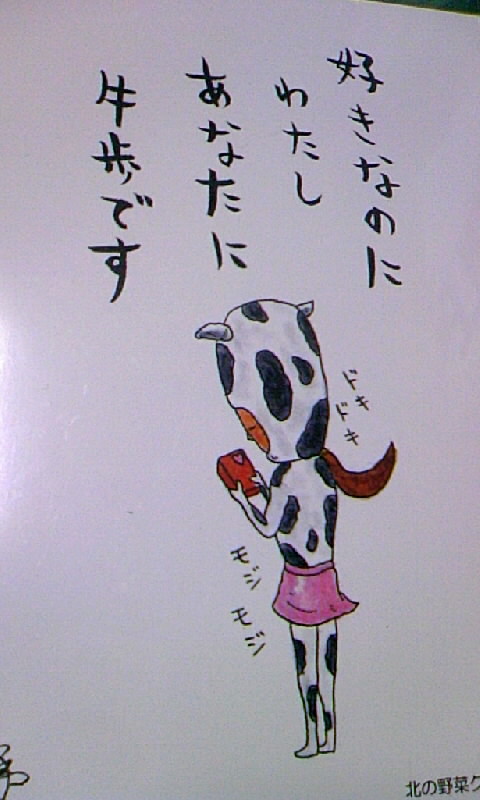 好きなのに
わたし
あなたに
牛歩です
ドキ
ドキ
モジ
モジ
北の野菜ク